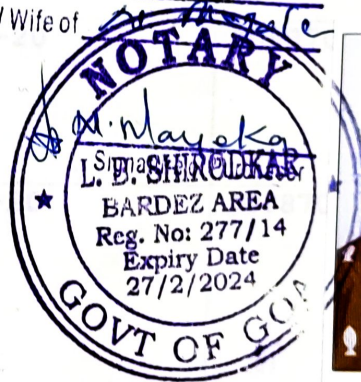 Wife of
NOTARY
L. D. SHIRODKAR
BARDEZ AREA
Reg. No: 277/14
Expiry Date
27/2/2024
GOVT OF GOA